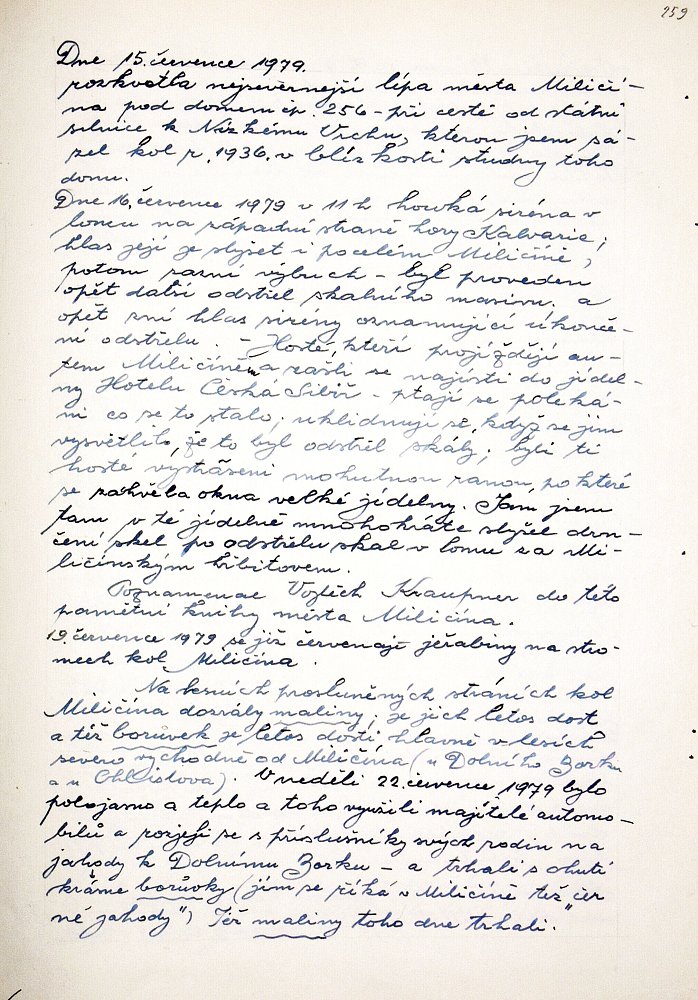 259
Dne 15. července 1979.
rozkvetla nejsevernejší lípa města Miličí-
na pod domem čp. 256 - při cestě od státní
silnice k Nízkému Vrchu, kterou jsem sá-
zel kol r. 1936. v blízkosti studny toho
domu.
Dne 16. července 1979 v 11 h houká siréna v
lomu na západní straně hory Kalvarie;
hlas její je slyšet i po celém Miličíně,
potom zazní výbuch - byl proveden
opět další odstřel skalního masivu. a
opět zní hlas sirény oznamující ukonče-
ní odstřelu. - Hosté, kteří projíždějí au-
tem Miličínem a zašli se najísti do jídel-
ny Hotelu Česká Sibiř - ptají se poleká-
ni co se to stalo; uklidňují se, když se jim
vysvětlilo, že to byl odstřel skály; byli ti
hosté vystrašeni mohutnou ranou, po které
se zachvěla okna velké jídelny. Sám jsem
tam v té jídelně mnohokráte slyšel drn-
čení skel po odstřelu skal v lomu za Mi-
ličínským hřbitovem.
Poznamenal Vojtěch Kraupner do této
pamětní knihy města Miličína.
19. července 1979 se již červenají jeřabiny na stro-
mech kol Miličína.
Na lesních prosluněných stráních kol
Miličína dozrály maliny; je jich letos dost
a též borůvek je letos dosti hlavně v lesích
severo východně od Miličína (u Dolního Borku
a u ). V neděli 22. července 1979 bylo
polojasno a teplo a toho využili majitelé automo-
bilů a rozjeli se s příslušníky svých rodin na
jahody k Dolnímu Borku - a trhali s chutí
krásné borůvky (jim se říká v Miličíně též "čer
né jahody") Též maliny toho dne trhali.